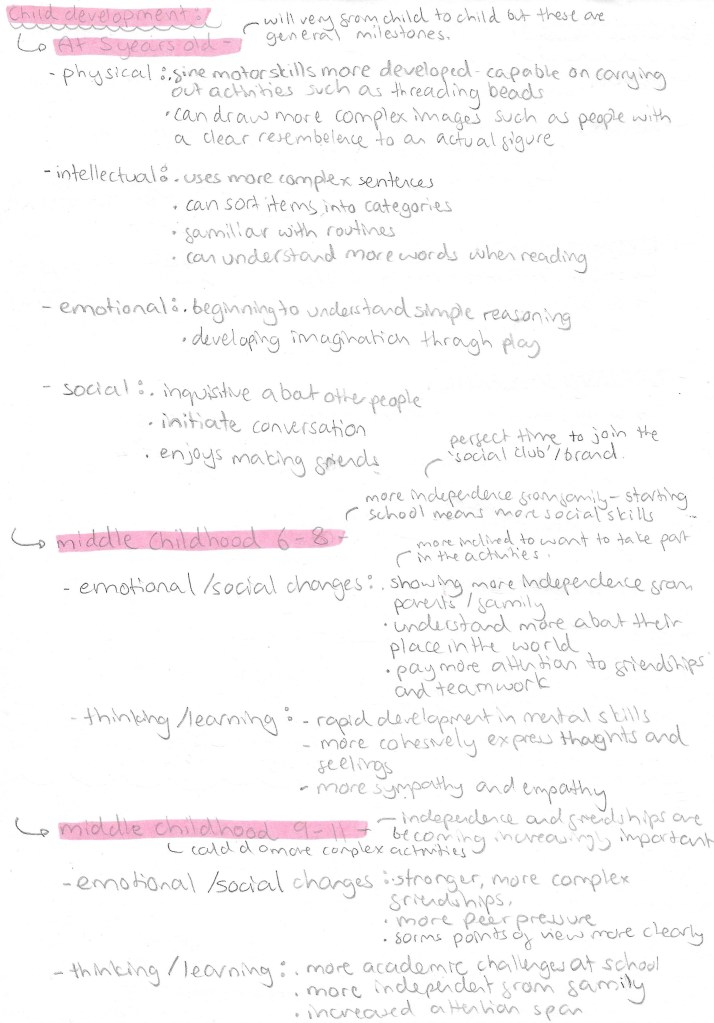 Child development:
will very from child to child but these are
general milestones.
At 5 years old -
- physical : fine motor skills more developed - capable on carrying
out activities such as threading beads
• can draw more complex images such as people with
a clear resembelence to an actual figure
- intellectual: • uses more complex sentences
• can sort items into categories
• familiar with routines
• can understand more words when reading
- emotional: • beginning to understand simple reasoning
• developing imagination through play
- social: • inquisitive about other people
• initiate conversation
• enjoys making friends
perfect time to join the
'social club'/brand.
more independence from family - starting
school means more social skills
middle childhood 6-8 -
more inclined to want to take part
in the activities.
- emotional/social changes: • showing more independence from
parents/family
• understand more about their
place in the world
• pay more attention to friendships
and teamwork
- thinking/learning: - rapid development in mental skills
- more cohesively express thoughts and
feelings
- more sympathy and empathy
middle childhood 9-11 -
- independence and friendships are
becoming increasingly important
could do more complex activities
- emotional/social changes: • stronger, more complex
friendships.
• more peer pressure
• forms points of view more clearly
- thinking/learning: • more academic challenges at school
• more independent from family
• increased attention span